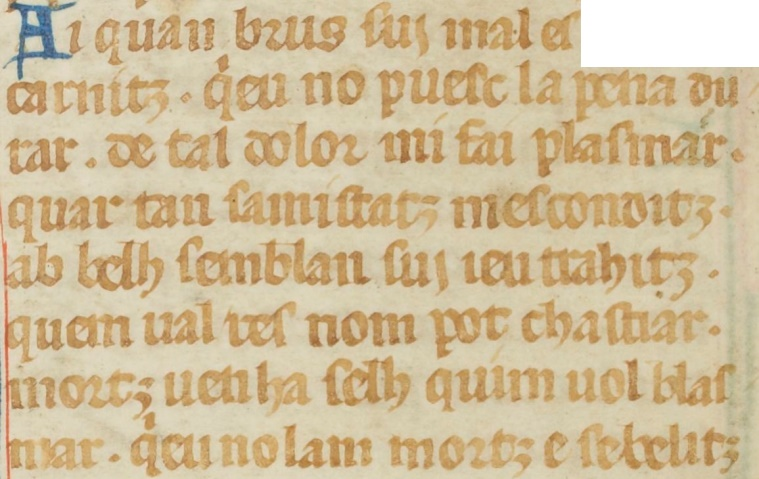 Ai quan brus suj mal es
carnitz. q̓eu no puesc la pena du
rar. de tal dolor mi fai plasmar.
quar tan samistatz mesconditz.
ab belh semblan suj ieu trahitz.
quem ual res nom pot chastiar.
mortz uenha selh quim uol blas
mar. q̓eu no lam mortz e sebelitz